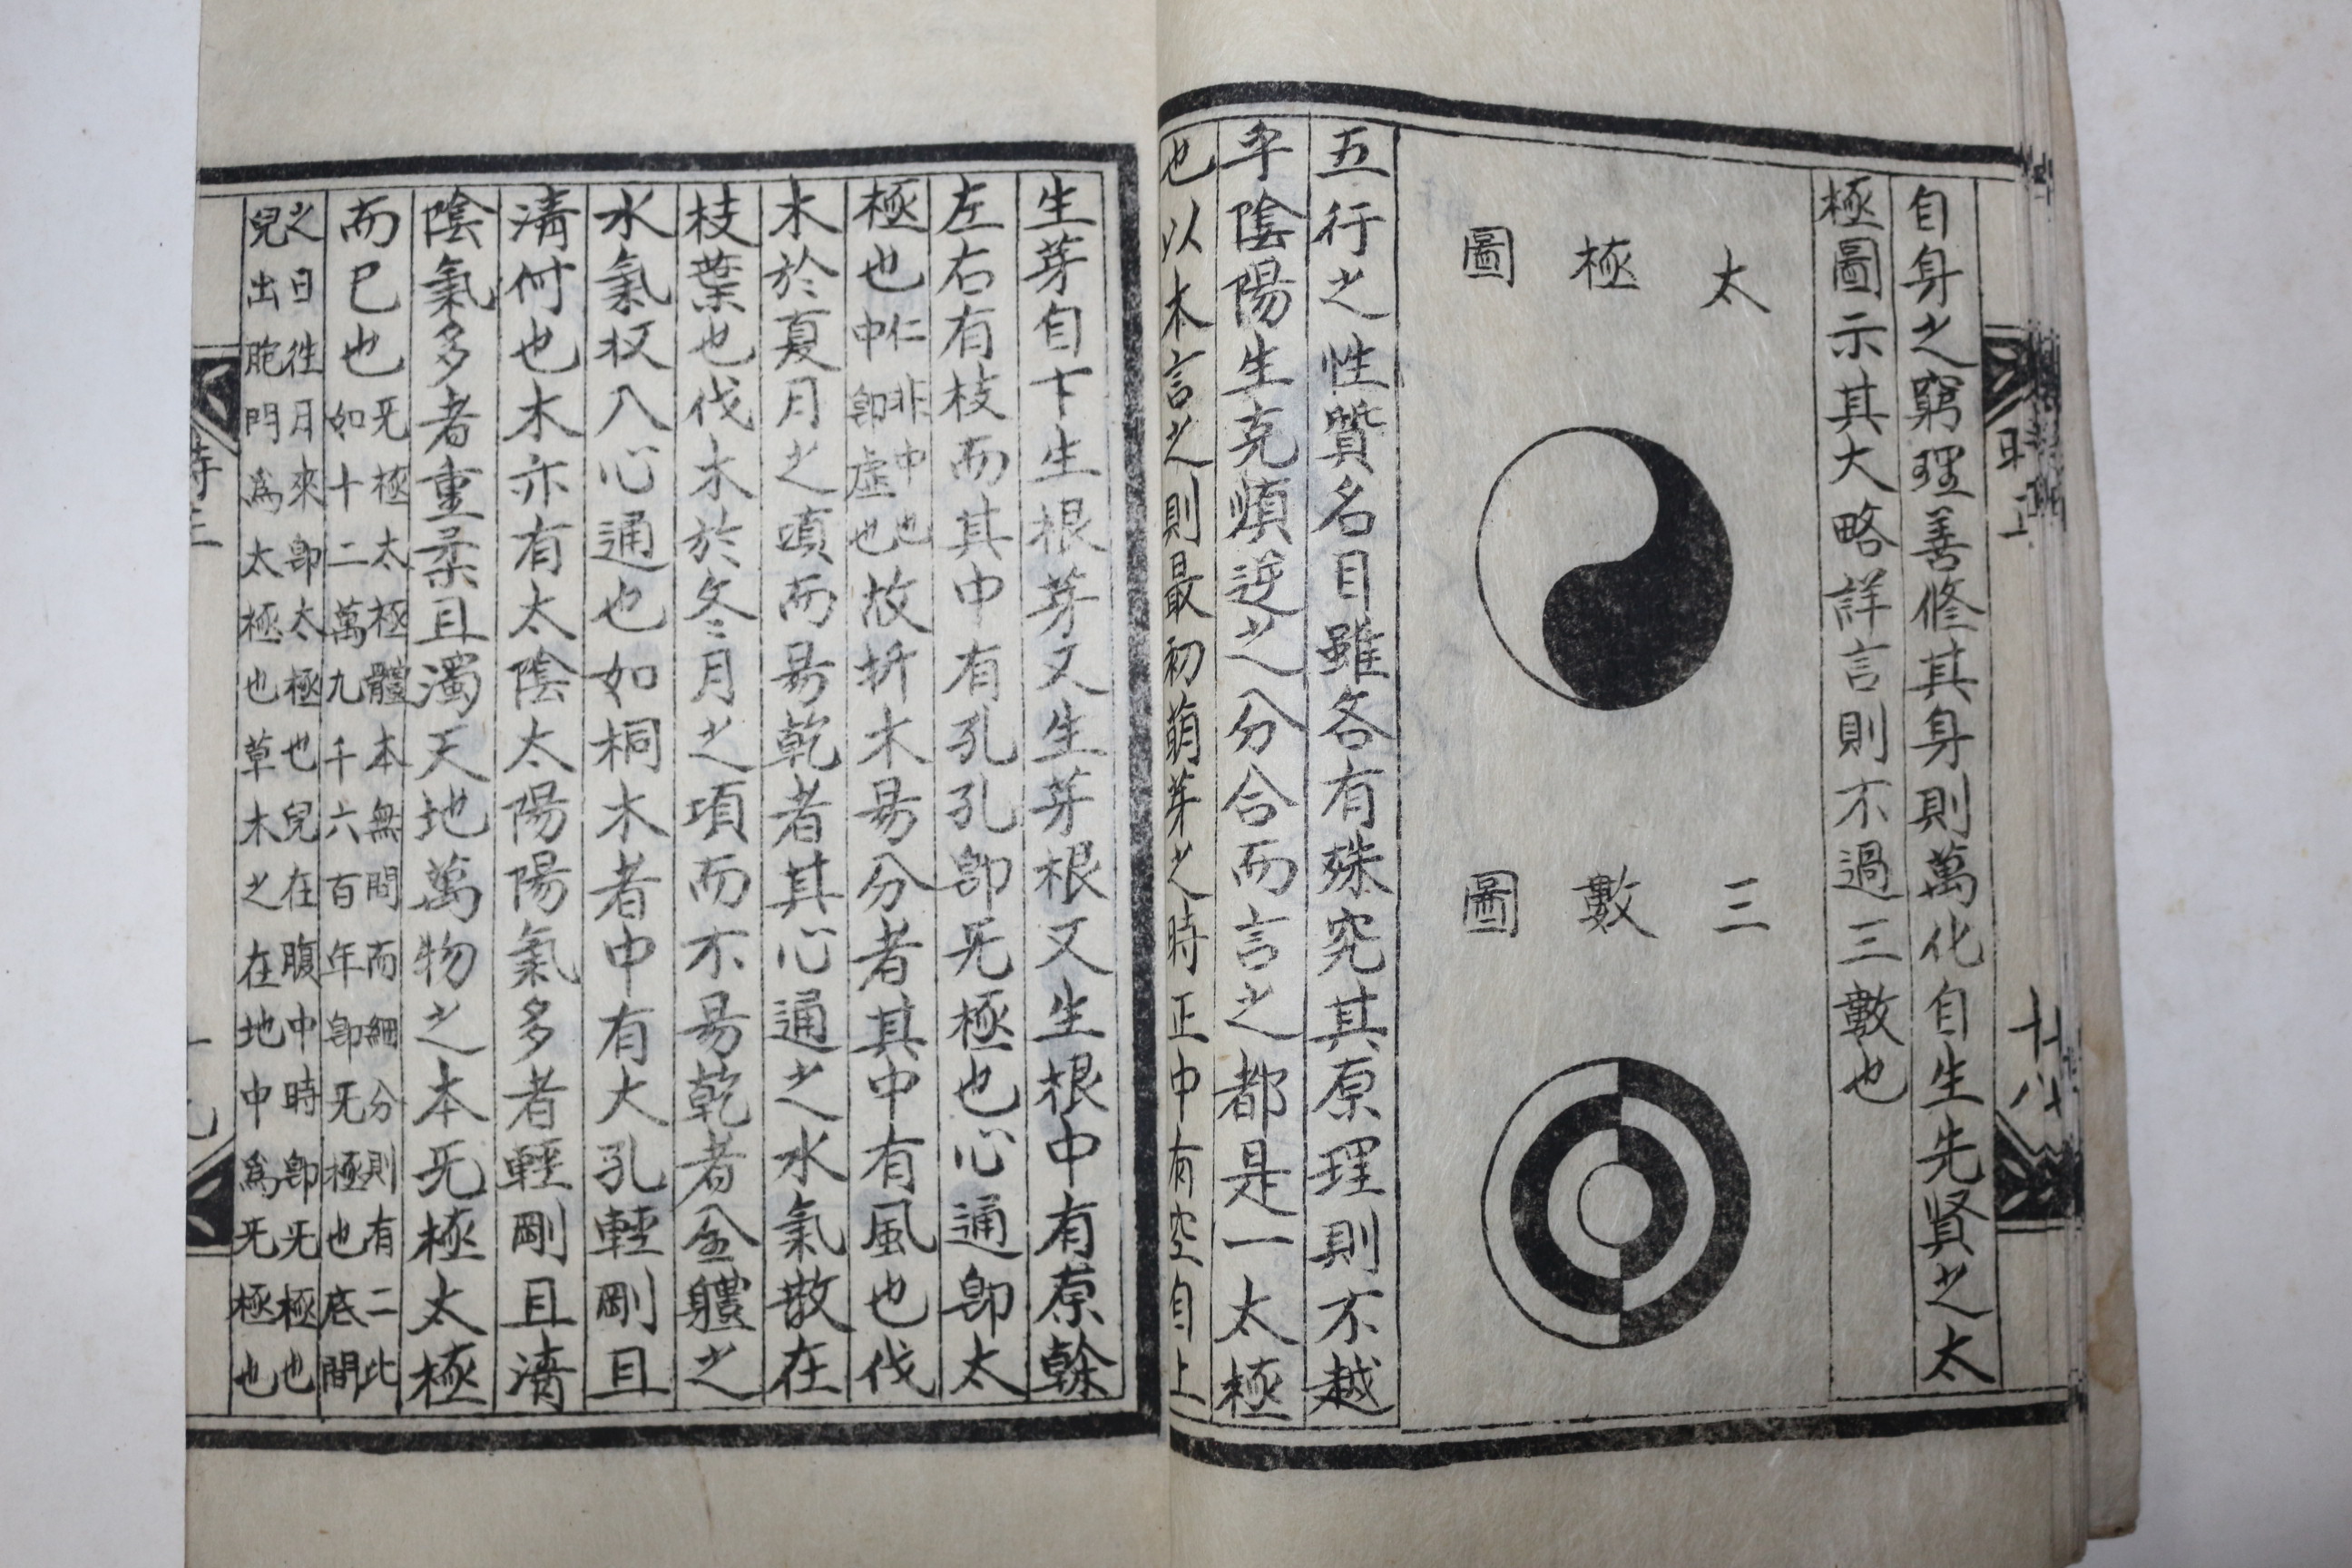 自身之窮理善修其身則萬化自生先賢之太
極圖示其大略詳言則不過三數也
太極圖
三數圖
五行之性質名目雖各有殊究其原理則不越
乎陰陽生克順逆之分合而言之都是一太極
也以木言之則最初萌芽之時正中有空自上
生芽自下生根芽又生芽根又生根中有原幹
左右有枝而其中有孔孔卽旡極也心通卽太
極也仁非中也中卽虛也故折木易分者其中有風也伐
木於夏月之頃而易乾者其心通之水氣散在
枝葉也伐木於冬月之項而不易乾者全軆之
水氣收入心通也如桐木者中有大孔輕剛且
淸何也木亦有太陰太陽陽氣多者輕剛且淸
陰氣多者重柔且濁天地萬物之本旡極太極
而已也旡極太極體本無間而細分則有二此
如十二萬九千六百年卽旡極也底間
之日徃月來卽太極也兒在腹中時卽旡極也
兒出胞門爲太極也草木之在地中爲旡極也